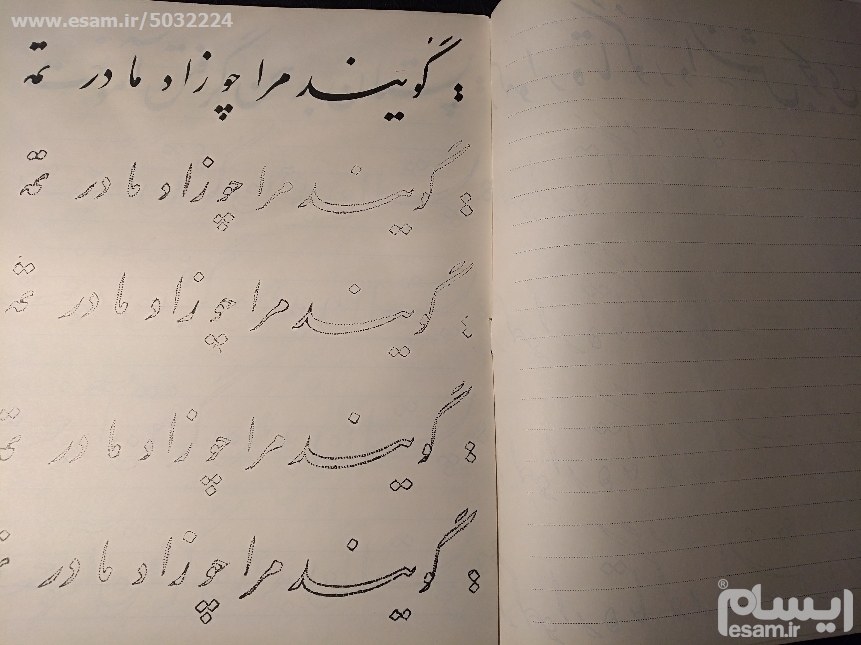 www.esam.ir/5032224
: گویند مرا چو زاد مادر تمه
: گویند مرا چو زاد مادر تمه
: گویند مرا چو زاد مادر تمه
: گویند مرا چو زاد مادر
: گویند مرا چو زاد مادر
ایسام
esam.ir